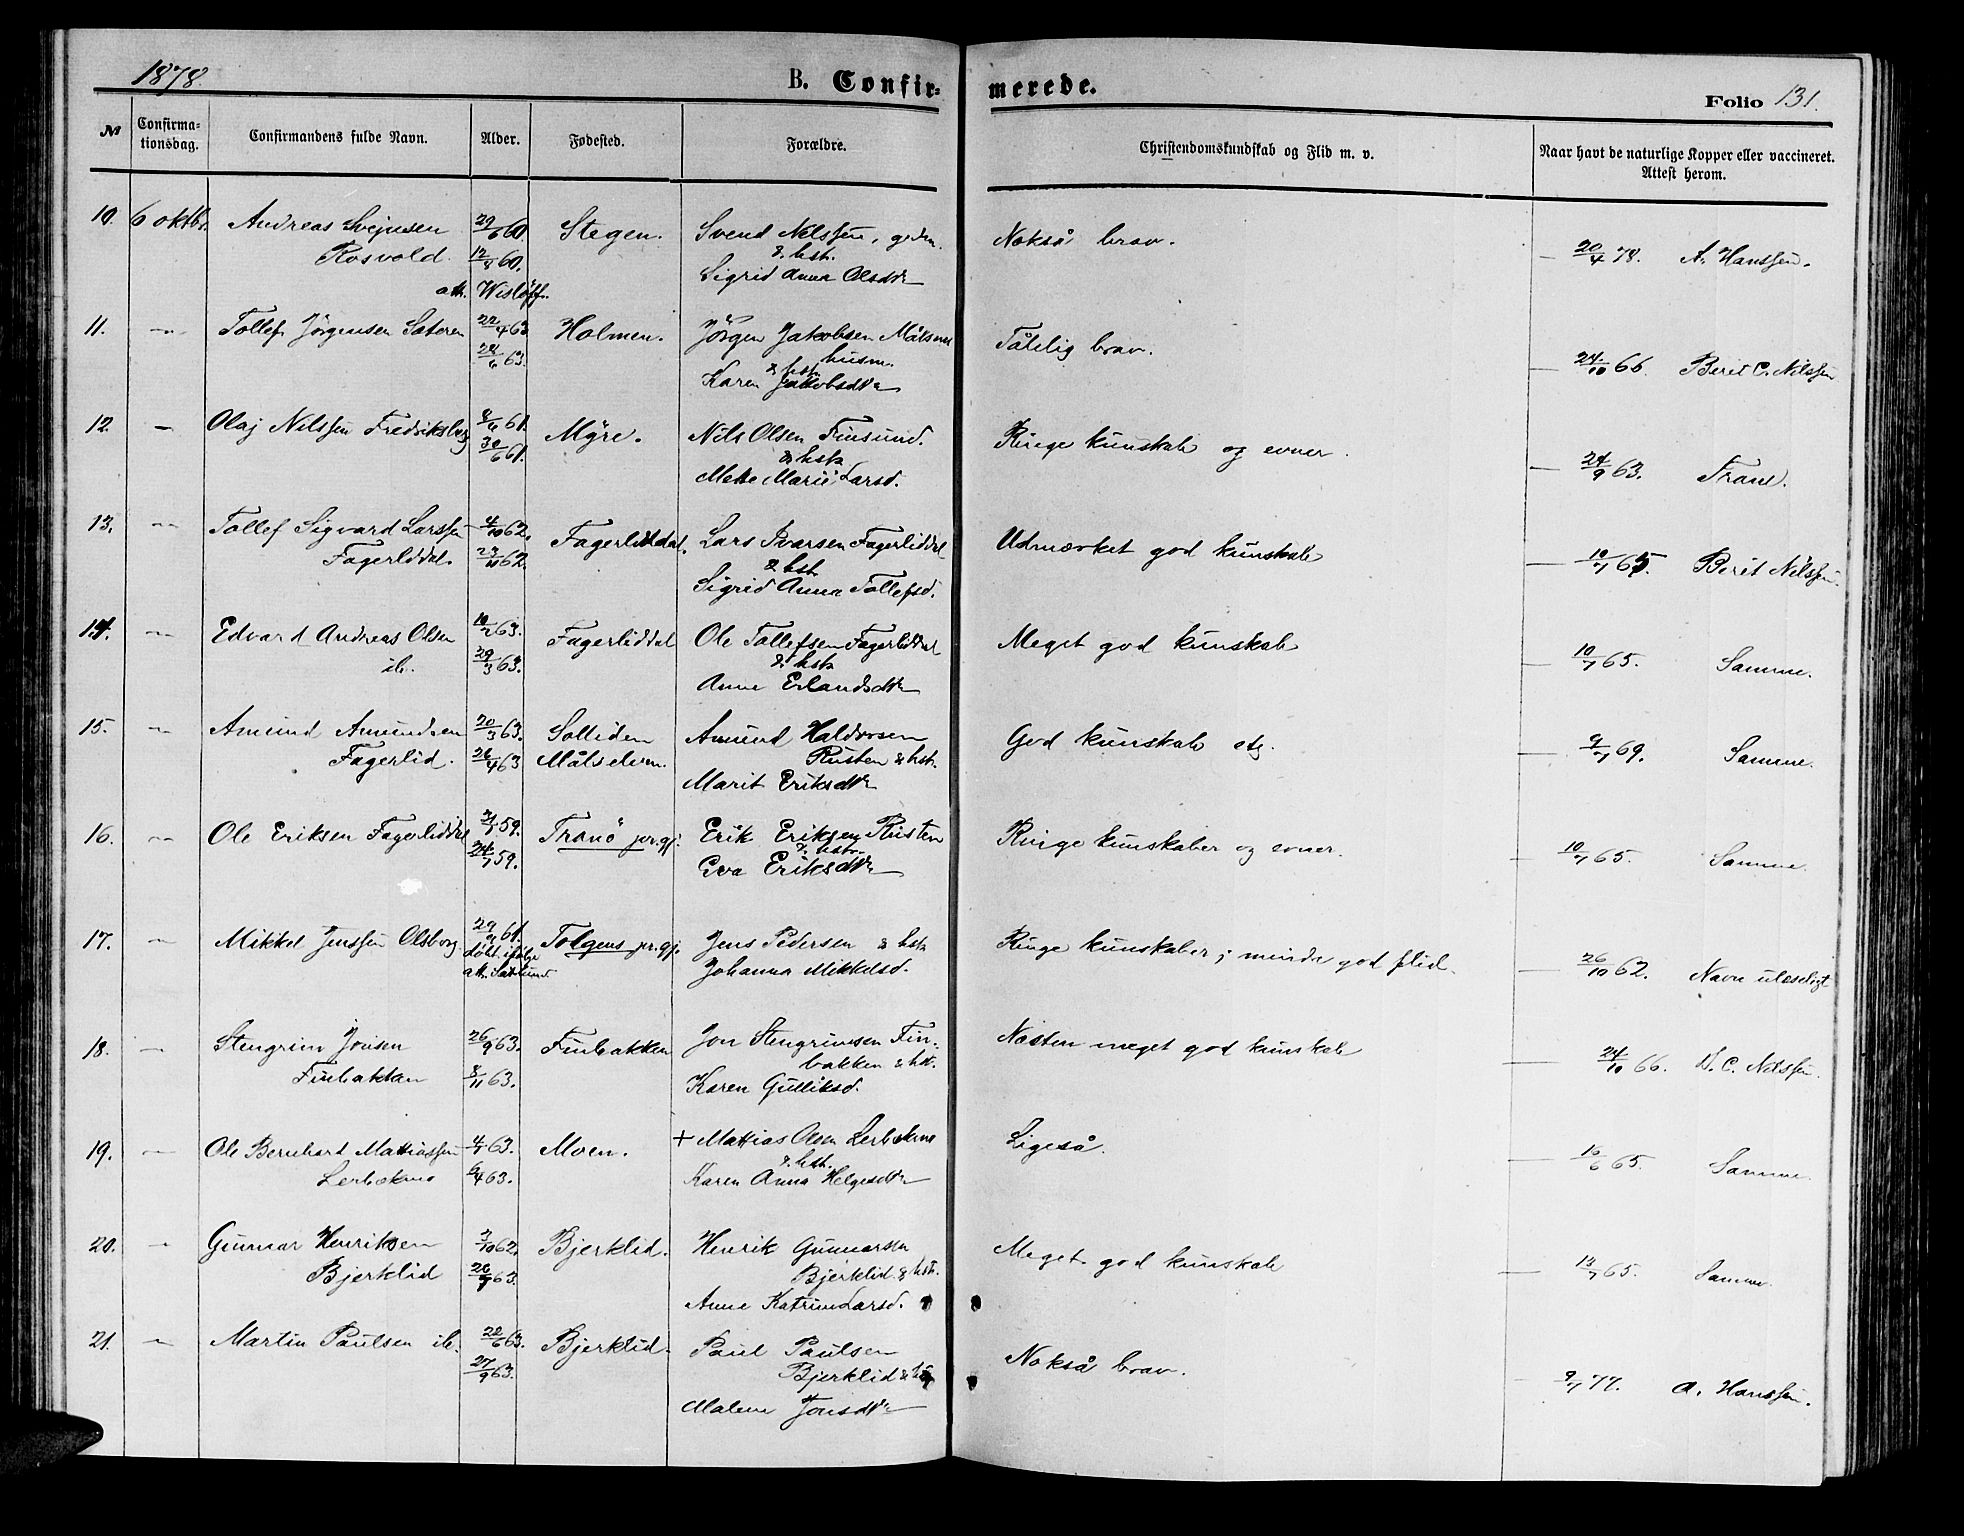 1878. B. Confir- merede. Folio 131.
№ Confirma-tionsdag. Confirmandens fulde Navn. Alder. Fødested. Forældre. Christendomskundskab og Flid m. v. Naar havt de naturlige Kopper eller vaccineret. Attest herom.
10. 6 oktbr. Andreas Svejnsen 29/6 60. Stegen. Svend Nilssen, gdm. Nokså brav. 20/4 78. A. Hanssen.
Rosvold. 12/8 60. & hst.
att. Wisløff. Sigrid Anna Olsdtr
11. — Tollef Jörgensen Sateren 22/4 63 Holmen. Jörgen Jakobsen Målsnes Tålelig brav. 24/10 66. Berit C. Nilssen
28/6 63. husm. & hst.
Karen Jakobsdtr
12. — Olaj Nilssen Fredriksberg 8/4 61. Myre. Nils Olsen Finsund. Ringe kunskab og evner. 24/9 63. Trane.
30/6 61. & hst.
Mette Marie Larsd.
13. — Tollef Sigvard Larssen 4/10 62. Fagerliddal. Lars Ivarsen Fagerliddal Udmærket god kunskab 10/7 65. Berit Nilssen
Fagerliddal. 23/11 62. & hst.
Sigrid Anna Tollefsd.
14. — Edvard Andreas Olsen 10/2 63. Fagerliddal Ole Tollefsen Fagerliddal Meget god kunskab 10/7 65. Samme.
ib. 29/3 63. & hst.
Anne Erlandsdtr
15. — Amund Amundsen 20/3 63. Solliden Amund Haldorsen God kunskab etg. 9/7 69. Samme.
Fagerlid. 26/4 63 Målselven. Rusten & hst.
Marit Eriksdtr
16. — Ole Eriksen Fagerliddal 3/5 59. Tranö pr.gj. Erik Eriksen Rusten Ringe kunskaber og evner. 10/7 65. Samme
24/7 59. & hst.
Eva Eriksdtr
17. — Mikkel Jenssen Olsborg. 29/9 61. Tolgens pr.gj. Jens Pedersen & hst. Ringe kunskaber; mindre god flid. 26/10 62. Navn ulæseligt
döbt ifölge Johanna Mikkelsd.
att.
18. — Stengrim Jonsen 26/9 63. Finbakken Jon Stengrimsen Fin- Næsten meget god kunskab 24/10 66. B. C. Nilssen.
Finbakken 8/11 63. bakken & hst.
Karen Gulliksd.
19. — Ole Bernhard Mathiassen 4/1 63. Moen. + Mathias Olsen Lerbekmo Ligeså. 16/6 65. Samme.
Lerbekmo 6/4 63. & hst.
Karen Anna Helgesdtr
20. — Gunnar Henriksen 3/10 62. Bjerklid. Henrik Gunnarsen Meget god kunskab 13/7 65. Samme.
Bjerklid 26/7 63. Bjerklid & hst.
Anne Katrine Larsd.
21. — Martin Paulsen ib. 22/6 63. Bjerklid. Paul Paulsen Nokså brav. 9/7 77. A. Hanssen.
27/9 63. Bjerklid & hst.
Malene Jonsdtr